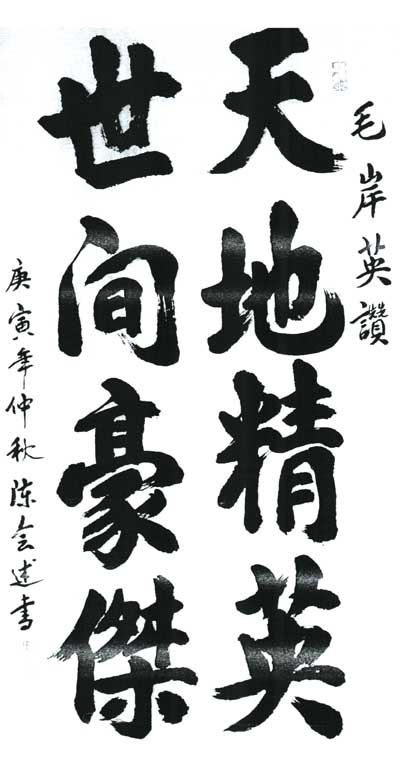 毛岸英讚
天地精英
世间豪傑
庚寅年仲秋陈会述书